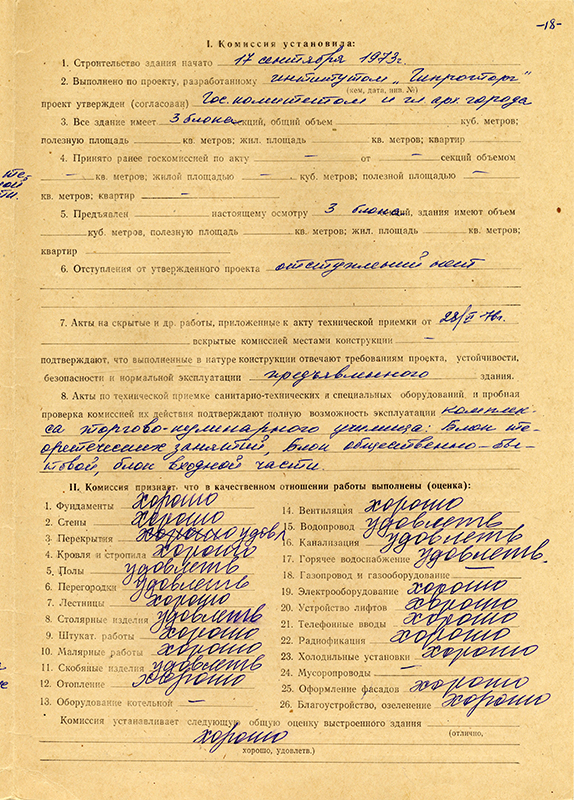 -18-
I. Комиссия установила:
1. Строительство здания начато 17 сентября 1973г.
2. Выполнено по проекту, разработанному институтом „Гипроторг"
(кем, дата, инв. №)
проект утвержден (согласован) Гос. комитетом и гл арх. города
3. Все здание имеет 3 блока секций, общий объем куб. метров;
полезную площадь кв. метров; жил. площадь кв. метров; квартир
4. Принято ранее госкомиссией по акту — от — секций объемом
— кв. метров; жилой площадью — куб. метров; полезной площадью —
кв. метров; квартир —
5. Предъявлен настоящему осмотру 3 блока секций, здания имеют объем
куб. метров, полезную площадь кв. метров; жил. площадь кв. метров;
квартир
6. Отступления от утвержденного проекта отступлений нет
7. Акты на скрытые и др. работы, приложенные к акту технической приемки от 28/V 76г.
вскрытые комиссией местами конструкции —
подтверждают, что выполненные в натуре конструкции отвечают требованиям проекта, устойчивости,
безопасности и нормальной эксплуатации предъявленного здания.
8. Акты по технической приемке санитарно-технических и специальных оборудований и пробная
проверка комиссией их действия подтверждают полную возможность эксплуатации комплек-
са торгово-кулинарного училища: Блок те-
оретических занятий, Блок общественно-бы-
товой, блок входной части.
II. Комиссия признает, что в качественном отношении работы выполнены (оценка):
1. Фундаменты хорошо
2. Стены хорошо
3. Перекрытия хорошо удовл
4. Кровля и стропила хорошо
5. Полы удовлетв
6. Перегородки удовлетв
7. Лестницы хорошо
8. Столярные изделия удовлетв
9. Штукат. работы хорошо
10. Малярные работы хорошо
11. Скобяные изделия удовлетв
12. Отопление хорошо
13. Оборудование котельной —
14. Вентиляция хорошо
15. Водопровод удовлетв
16. Канализация удовлетв
17. Горячее водоснабжение удовлетв.
18. Газопровод и газооборудование —
19. Электрооборудование хорошо
20. Устройство лифтов хорошо
21. Телефонные вводы хорошо
22. Радиофикация хорошо
23. Холодильные установки хорошо
24. Мусоропроводы —
25. Оформление фасадов хорошо
26. Благоустройство, озеленение хорошо
Комиссия устанавливает следующую общую оценку выстроенного здания
(отлично,
хорошо
хорошо, удовлетв.)